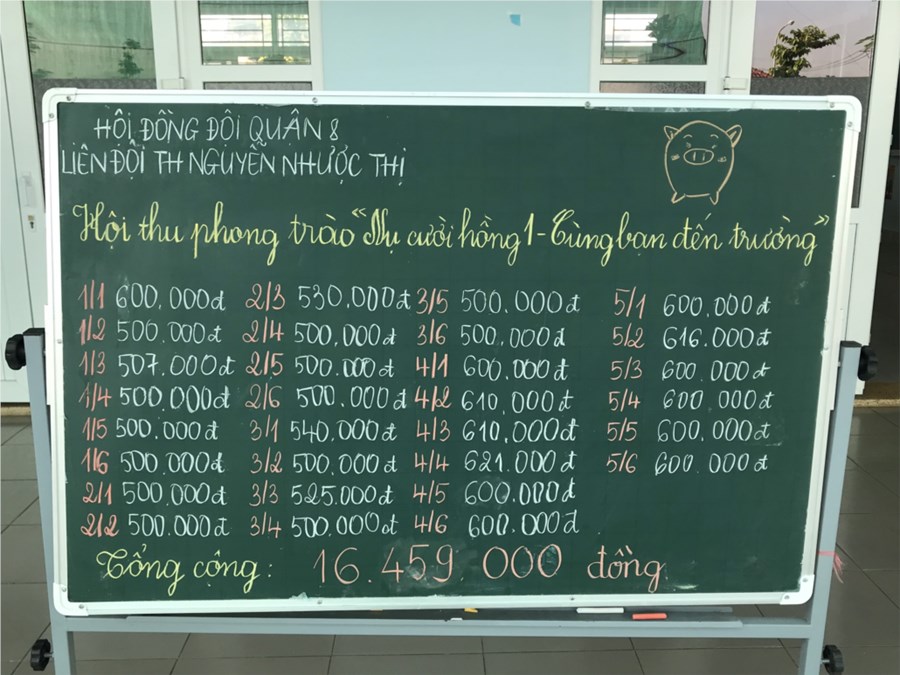 HỘI ĐỒNG ĐỘI QUẬN 8
LIÊN ĐỘI TH NGUYỄN NHƯỢC THỊ
Hội thu phong trào "Nụ cười hồng 1 - Cùng bạn đến trường"
1/1 600.000đ 2/3 530.000đ 3/5 500.000đ 5/1 600.000đ
1/2 500.000đ 2/4 500.000đ 3/6 500.000đ 5/2 616.000đ
1/3 507.000đ 2/5 500.000đ 4/1 600.000đ 5/3 600.000đ
1/4 500.000đ 2/6 500.000đ 4/2 610.000đ 5/4 600.000đ
1/5 500.000đ 3/1 540.000đ 4/3 610.000đ 5/5 600.000đ
1/6 500.000đ 3/2 500.000đ 4/4 621.000đ 5/6 600.000đ
2/1 500.000đ 3/3 525.000đ 4/5 600.000đ
2/2 500.000đ 3/4 500.000đ 4/6 600.000đ
Tổng cộng: 16.459.000 đồng